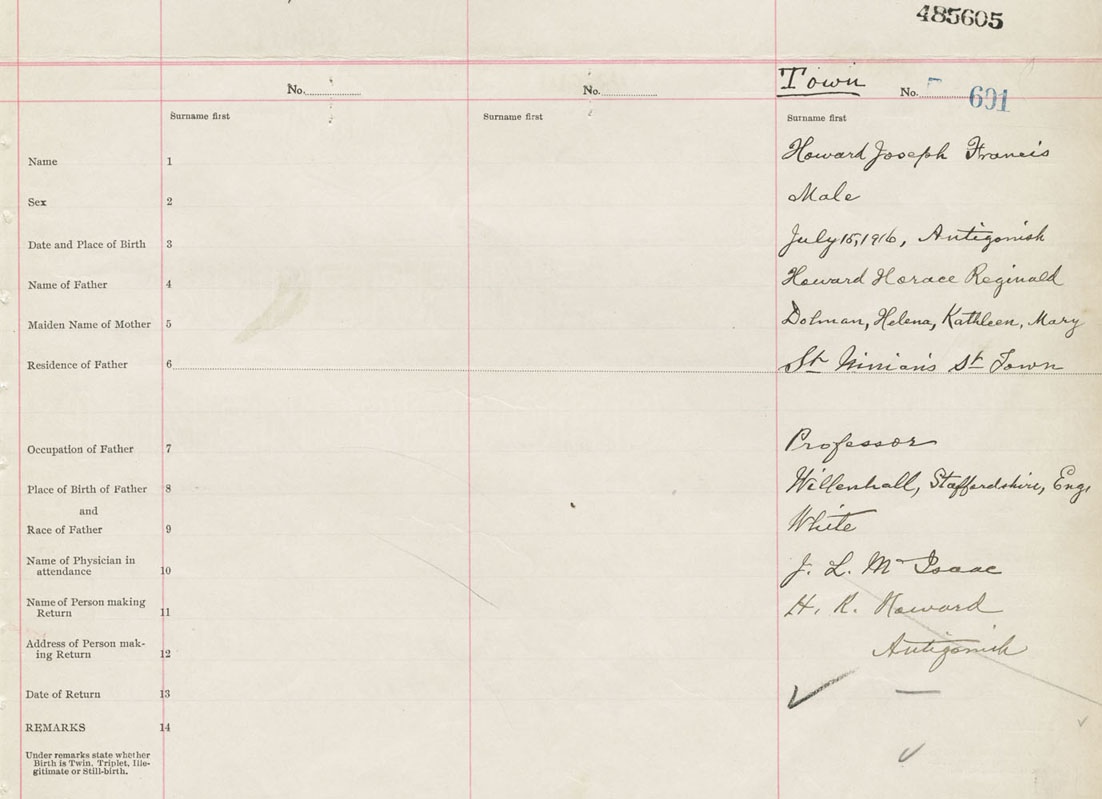 485605
No. No. Town No. 601
Surname first Surname first Surname first
Name 1 Howard Joseph Francis
Sex 2 Male
Date and Place of Birth 3 July 15, 1916, Antigonish
Name of Father 4 Howard Horace Reginald
Maiden Name of Mother 5 Dolman, Helena, Kathleen, Mary
Residence of Father 6 St Ninian's St Town
Occupation of Father 7 Professor
Place of Birth of Father 8 Willenhall, Staffordshire, Eng,
and
Race of Father 9 White
Name of Physician in
attendance 10 J. L. Mc Isaac
Name of Person making
Return 11 H. R. Howard
Address of Person mak-
ing Return 12 Antigonish
Date of Return 13 —
REMARKS 14
Under remarks state whether
Birth is Twin, Triplet, Ille-
gitimate or Still-birth.